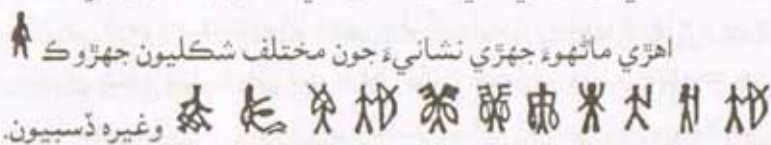 اهڙي ماڻهوءَ جهڙي نشانيءَ جون مختلف شڪليون جهڙوڪ
وغيره ڏسبيون.